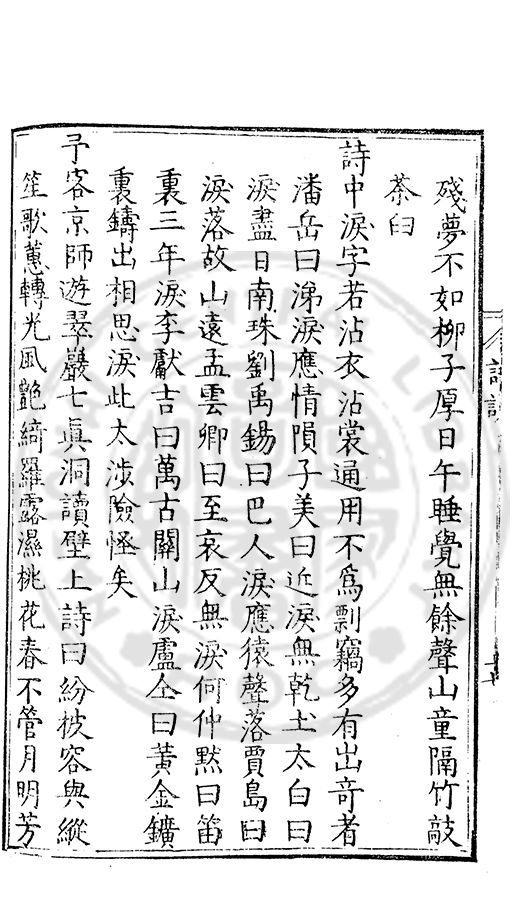 殘夢不如柳子厚日午睡覺無餘聲山童隔竹敲
茶臼
詩中淚字若沾衣沾裳通用不爲剽竊多有出奇者
潘岳曰涕淚應情隕子美曰近淚無乾土太白曰
淚盡日南珠劉禹錫曰巴人淚應猿聲落賈島曰
淚落故山遠孟雲卿曰至哀反無淚何仲默曰笛
裏三年淚李獻吉曰萬古關山淚盧仝曰黃金鑛
裏鑄出相思淚此太涉險怪矣
予客京師遊翠巖七眞洞讀壁上詩曰紛披容與縱
笙歌蕙轉光風艶綺羅露濕桃花春不管月明芳